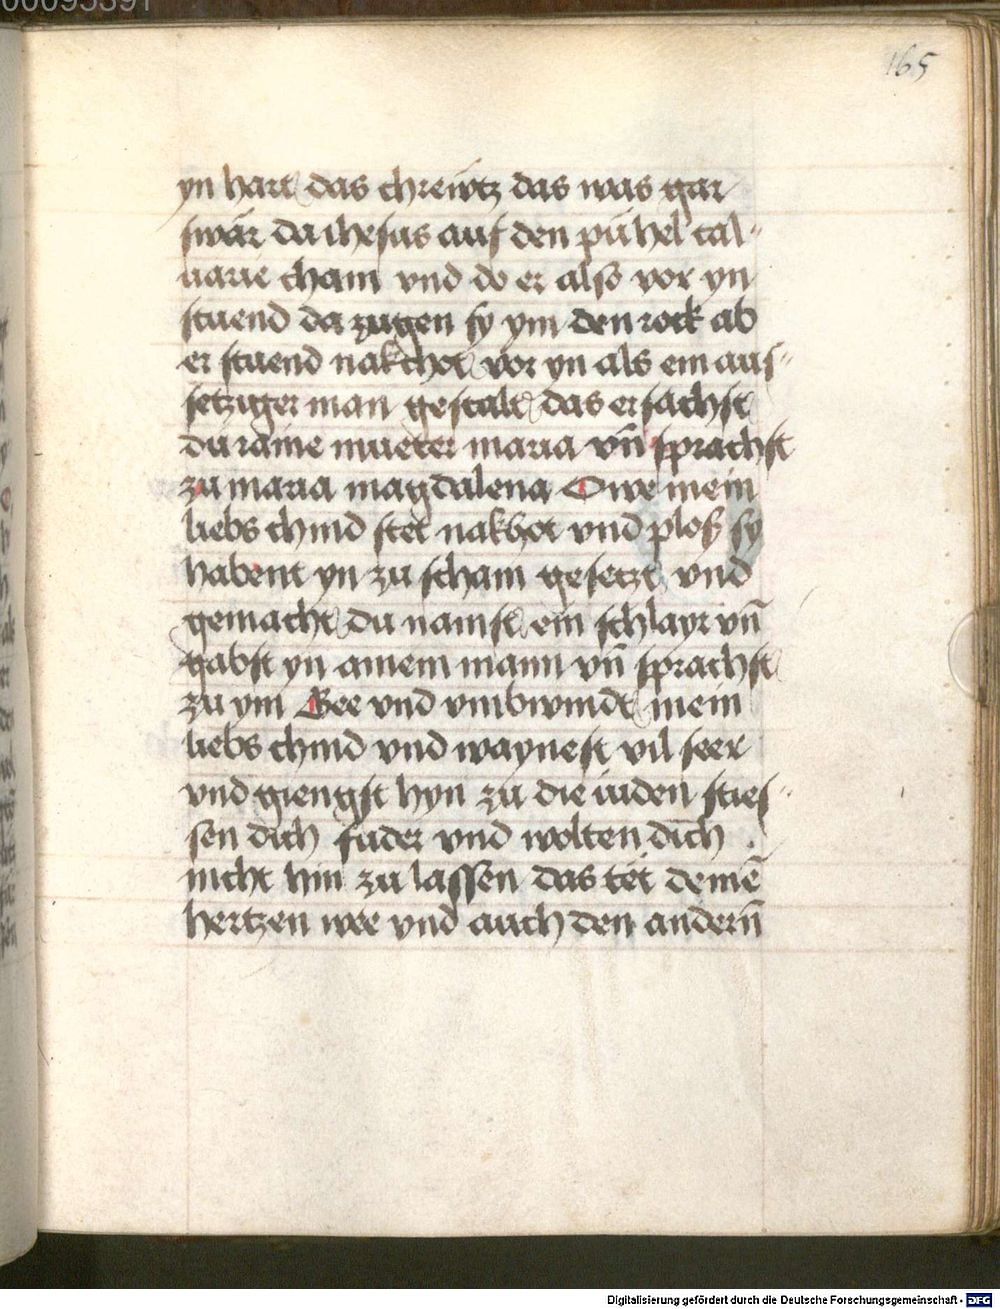 165
yn hart das chrewtz das was gar
swär da ihesus auf den pühel cal-
uarie cham vnd do er also vor yn
stuend da zugen sy ym den rock ab
er stuend nakchot vor yn als ein aus-
setziger man gestalt das ersachst
du raine mueter maria vn̄ sprachst
zu maria magdalena Owe mein
liebs chind stet nakhot vnd plos sy
habent yn zu scham gesetzt vnd
gemacht du namst ein schlayr vn̄
gabst yn ainem mann vn̄ sprachst
zu ym Gee vnd vmbwindt mein
liebs chind vnd waynest vil seer
vnd giengst hyn zu die iuden sties-
sen dich fuder vnd wolten dich
nicht hin zu lassen das tet deinē
hertzen wee vnd auch den andern̄
Digitalisierung gefördert durch die Deutsche Forschungsgemeinschaft - DFG